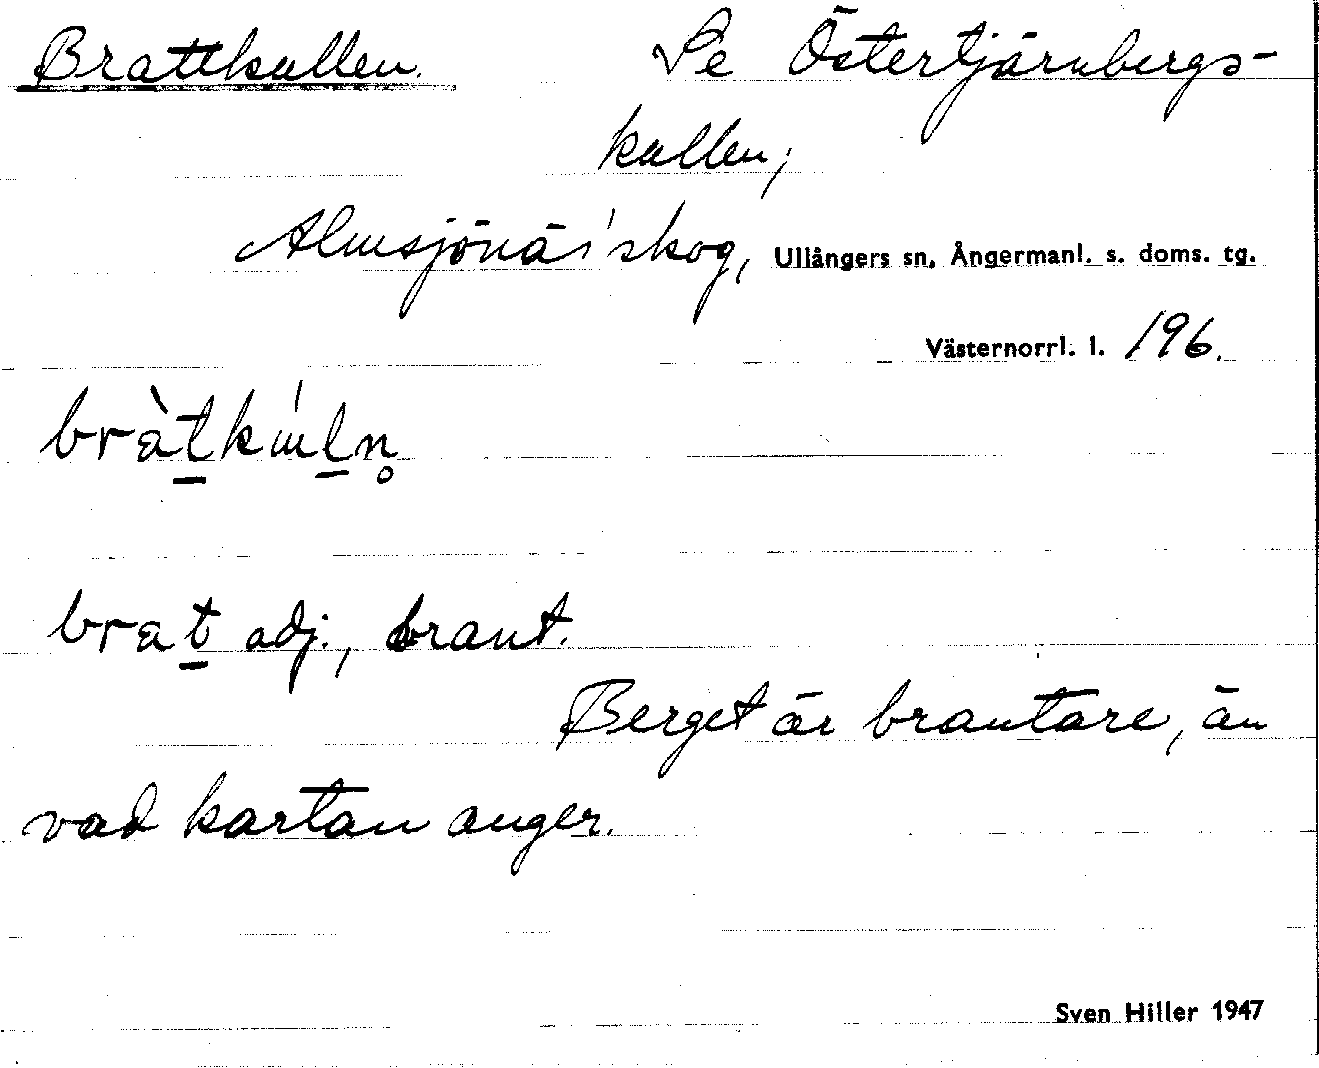 Brattkullen. Se Östertjärnbergs-
kullen;
Almsjönäs skog, Ullångers sn, Ångermanl. s. doms. tg.
Västernorrl. l. 196.
brat adj., brant.
Berget är brantare, än
vad kartan anger.
Sven Hiller 1947